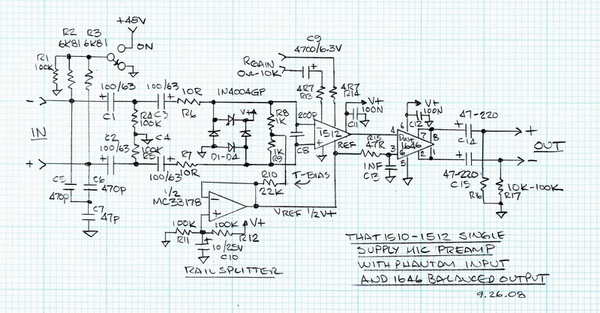 +48V
R2 R3
6K81 6K81
ON
R1
100K
C9
4700/6.3V
RGAIN
0Ω-10K
4R7
R13
4R7
R14
100/63
C1
100/63
10R
R6
1N4004GP
V++
R4
100K
C4
200p
R8
1K
V+
100N
C11
V+
100N
C12
47-220
C14
IN
C2
100/63
100K
R5
100/63
R7
10R
D1-D4
R9
1K
C8
1512
REF
R15
47R
1NF
C13
THAT
1646
4
6
3
5
7
8
2
1
+
-
OUT
47-220
C15
R10
22K
T-BIAS
C5
470p
C6
470p
C7
47p
1/2
MC33178
VREF 1/2V+
R16
R17
10K-100K
100K
R11
100K
R12
V+
10/25V
C10
RAIL SPLITTER
THAT 1510-1512 SINGLE
SUPPLY MIC PREAMP
WITH PHANTOM INPUT
AND 1646 BALANCED OUTPUT
9.26.08